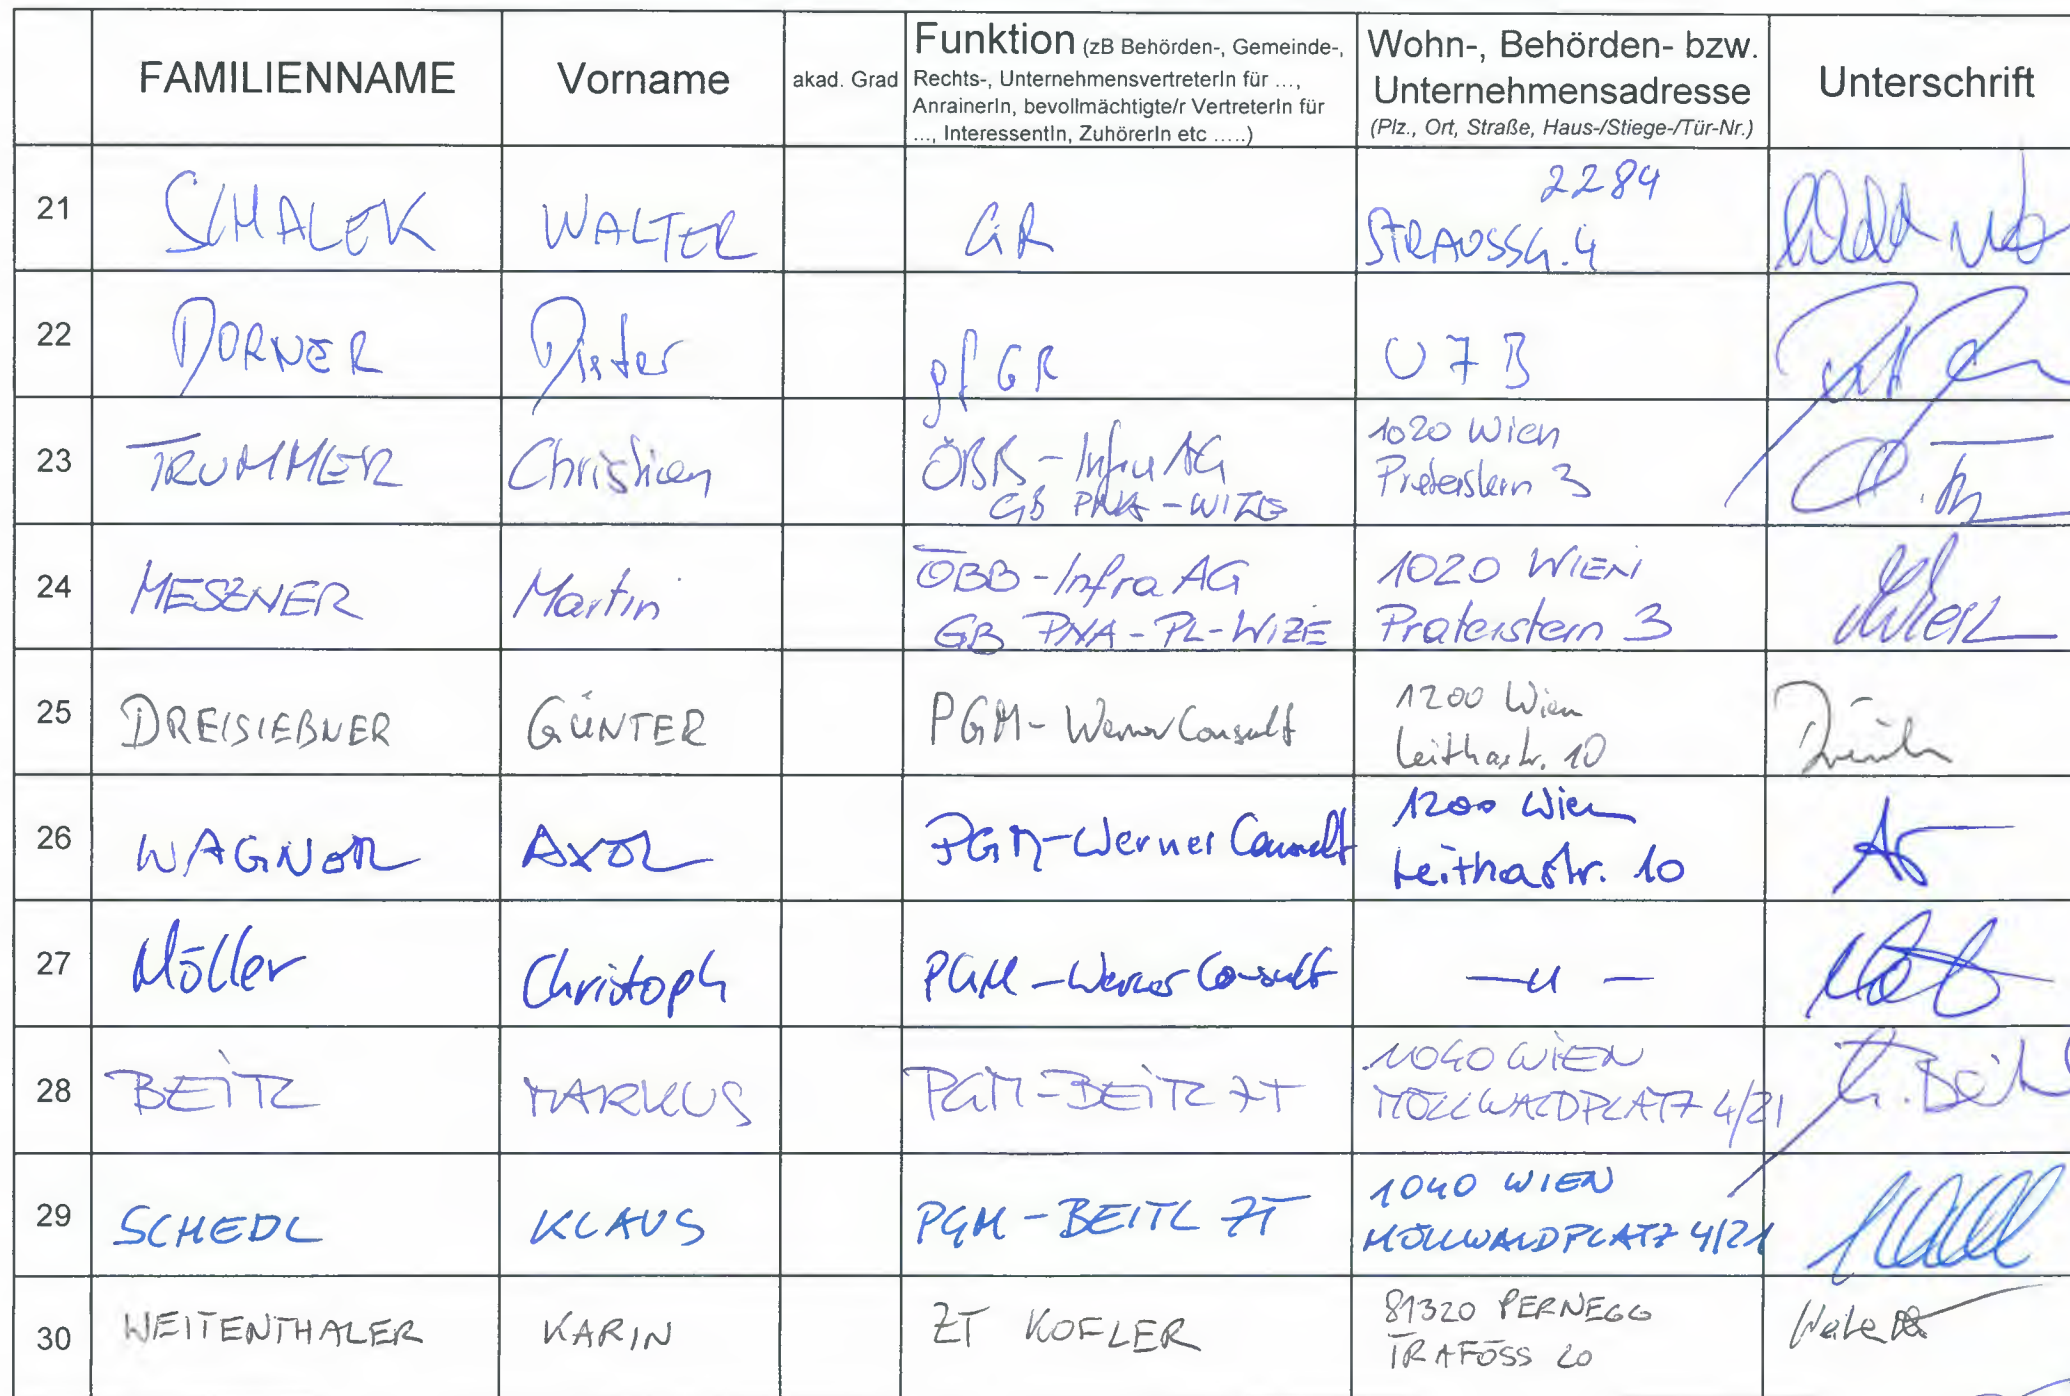 FAMILIENNAME Vorname akad. Grad Funktion (zB Behörden-, Gemeinde-, Rechts-, UnternehmensvertreterIn für ..., AnrainerIn, bevollmächtigte/r VertreterIn für ..., InteressentIn, ZuhörerIn etc .....) Wohn-, Behörden- bzw. Unternehmensadresse (Plz., Ort, Straße, Haus-/Stiege-/Tür-Nr.) Unterschrift
21 SCHALEK WALTER GR 2284 STRAUSSG. 4
22 DORNER Dieter gf GR
23 TRUMMER Christian ÖBB - Infra AG GB PNA - WIZE 1020 Wien Praterstern 3
24 MESZNER Martin ÖBB - Infra AG GB PNA - PL - WIZE 1020 WIEN Praterstern 3
25 DREISIEBNER GÜNTER PGM - Werner Consult 1200 Wien Leithastr. 10
26 WAGNER AXEL PGM - Werner Consult 1200 Wien Leithastr. 10
27 Möller Christoph PGM - Werner Consult — " —
28 BEITL MARKUS PGM - BEITL ZT 1040 WIEN MÖLLWALDPLATZ 4/21
29 SCHEDL KLAUS PGM - BEITL ZT 1040 WIEN MÖLLWALDPLATZ 4/21
30 WEITENTHALER KARIN ZT KOFLER PERNEGG TRAFÖSS 20